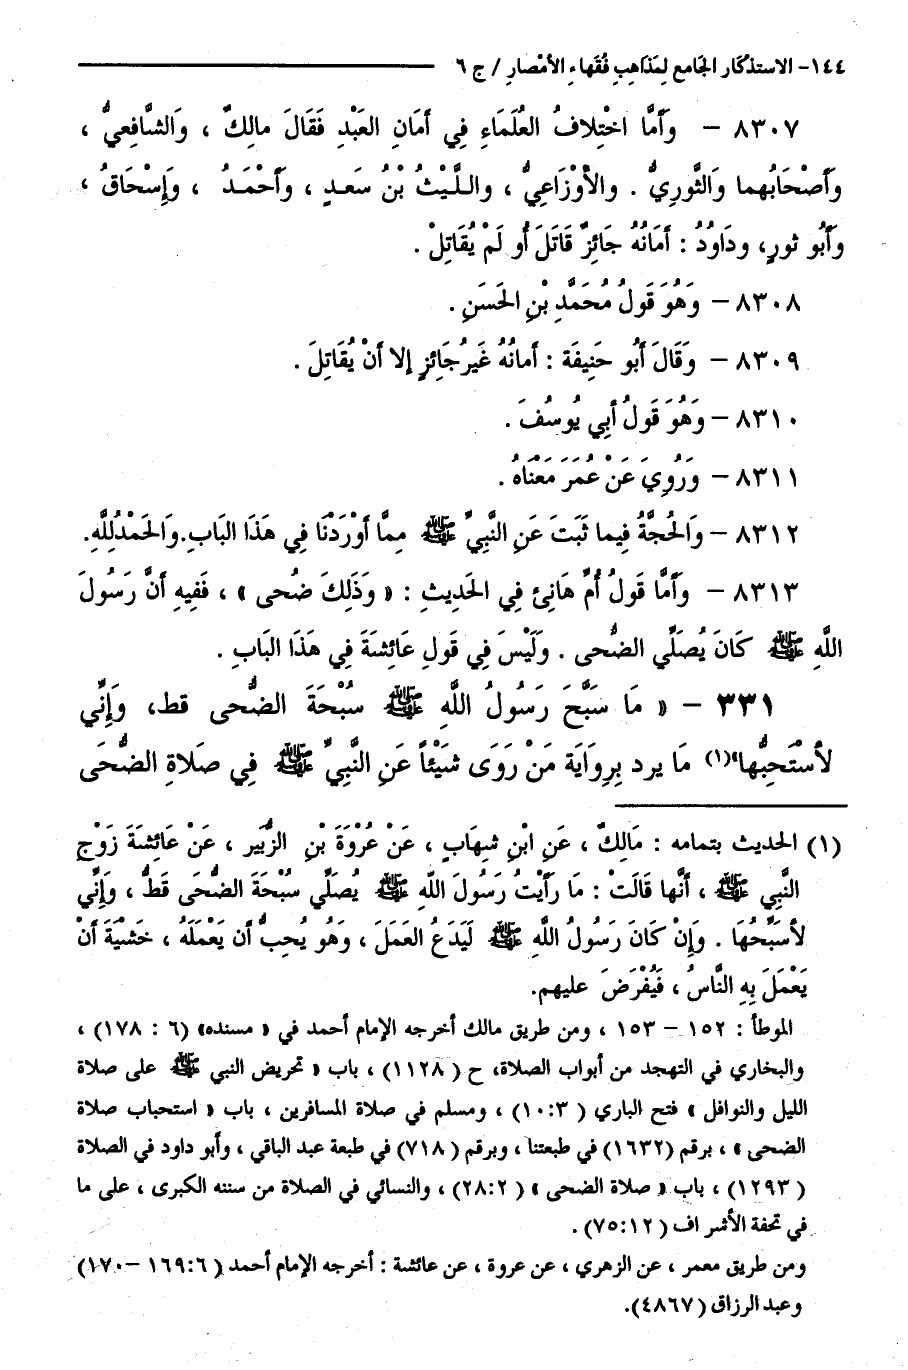 ١٤٤- الاستذكار الجَامع لِمَذاهِبِ فُقَهاءِ الأمْصارِ / ج ٦
٨٣٠٧ – وَأَمَّا اخْتِلافُ العُلَمَاءِ فِي أمَانِ العَبْدِ فَقَالَ مالِكٌ ، وَالشَّافِعيُّ ،
وَأَصْحَابُهما وَالثَّوريُّ . والأوْزَاعِيُّ ، واللَّيْثُ بْنُ سَعدٍ ، وأَحْمَدُ ، وَإِسْحَاقُ ،
وَأَبُو ثورٍ، ودَاوُدُ : أمَانُهُ جَائِزٌ قَاتَلَ أو لَمْ يُقَاتِلْ .
٨٣٠٨ – وَهُوَ قَولُ مُحَمَّدِ بْنِ الحَسَنِ .
٨٣٠٩ – وَقَالَ أبُو حَنِيفَة : أمانُهُ غَيرُ جَائِزٍ إلا أنْ يُقَاتِلَ .
٨٣١٠ – وَهُوَ قَولُ أبِي يُوسُفَ .
٨٣١١ – وَرُوِيَ عَنْ عُمَرَ مَعْنَاهُ .
٨٣١٢ – وَالحُجَّةُ فِيما ثَبَتَ عَنِ النَّبِيِّ ﷺ مِمَّا أوْرَدْنَا فِي هَذَا البَابِ.وَالحَمْدُللَّهِ.
٨٣١٣ – وَأمَّا قَولُ أُمِّ هَانِئ فِي الحَدِيثِ : « وَذَلِكَ ضُحى » ، فَفِيهِ أنَّ رَسُولَ
اللَّهِ ﷺ كَانَ يُصَلِّي الضُّحى . وَلَيْسَ فِي قَولِ عَائِشَةَ فِي هَذَا البَابِ .
٣٣١ – « مَا سَبَّحَ رَسُولُ اللَّهِ ﷺ سبْحَةَ الضُّحى قط، وَإِنِّي
لأسْتَحِبُّها»(١) مَا يرد بِرِوَايَة مَنْ رَوَى شَيْئاً عَنِ النَّبِيِّ ﷺ فِي صَلاةِ الضُّحَى
(١) الحَديث بتمامه : مَالِكٌ ، عَنِ ابْنِ شِهَابٍ ، عَنْ عُرْوَةَ بْنِ الزُّبَيرِ ، عَنْ عَائِشَةَ زَوْجِ
النَّبِي ﷺ ، أنَّها قَالَتْ : مَا رَأَيْتُ رَسُولَ اللّهِ ﷺ يُصَلِّي سُبْحَةَ الضُّحَى قَطُّ ، وَإِنِّي
لأُسَبِّحُهَا . وَإِنْ كَانَ رَسُولُ اللَّهِ ﷺ لَيَدَعُ العَمَلَ ، وَهُو يُحِبُّ أن يَعْمَلَهُ ، خَشْيَةَ أنْ
يَعْمَلَ بِهِ النَّاسُ ، فَيُفْرَضَ عليهم.
الموطأ : ١٥٢ – ١٥٣ ، ومن طريق مالك أخرجه الإمام أحمد في « مسنده» (٦ : ١٧٨) ،
والبخاري في التهجد من أبواب الصلاة، ح ( ١١٢٨) ، باب « تحريض النبي ﷺ على صلاة
الليل والنوافل » فتح الباري ( ١٠:٣) ، ومسلم في صلاة المسافرين ، باب « استحباب صلاة
الضحى » ، برقم (١٦٣٢) في طبعتنا ، وبرقم ( ٧١٨) في طبعة عبد الباقي ، وأبو داود في الصلاة
( ١٢٩٣) ، باب « صلاة الضحى » ( ٢٨:٢) ، والنسائي في الصلاة من سننه الكبرى ، على ما
في تحفة الأشراف ( ٧٥:١٢) .
ومن طريق معمر ، عن الزهري ، عن عروة ، عن عائشة : أخرجه الإمام أحمد ( ١٦٩:٦ –١٧٠)
وعبد الرزاق ( ٤٨٦٧).